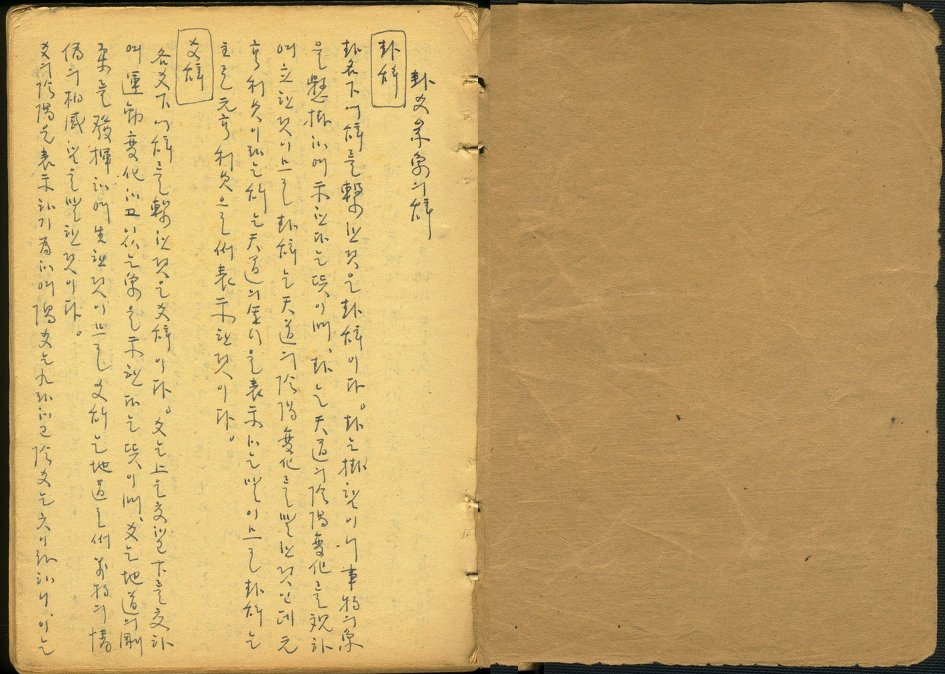 卦爻彖象의 辭
卦辭
卦名下에 辭를 繫한것은 卦辭이다。卦는 掛함이니 事物의 象
을 懸掛하여 示한다는 뜻이며、卦는 天道의 陰陽變化를 觀하
여 立한것이므로 卦辭는 天道의 陰陽變化를 말한것인데 元
亨利貞이라는 辭는 天道의 운행을 表示하는 말이므로 卦辭는
主로 元亨利貞으로써 表示한것이다。
爻辭
各爻下에 辭를 繫한것은 爻辭이다。爻는 上을 交하고 下를 交하
여 運動變化하고 있는 象을 示한다는 뜻이며、爻는 地道의 剛
柔를 發揮하여 生한것이므로 爻辭는 地道로써 萬物의 情
僞의 相感함을 말한것이다。
爻의 陰陽을 表示하기 爲하여 陽爻는 九라하고 陰爻는 六이라하니、이는